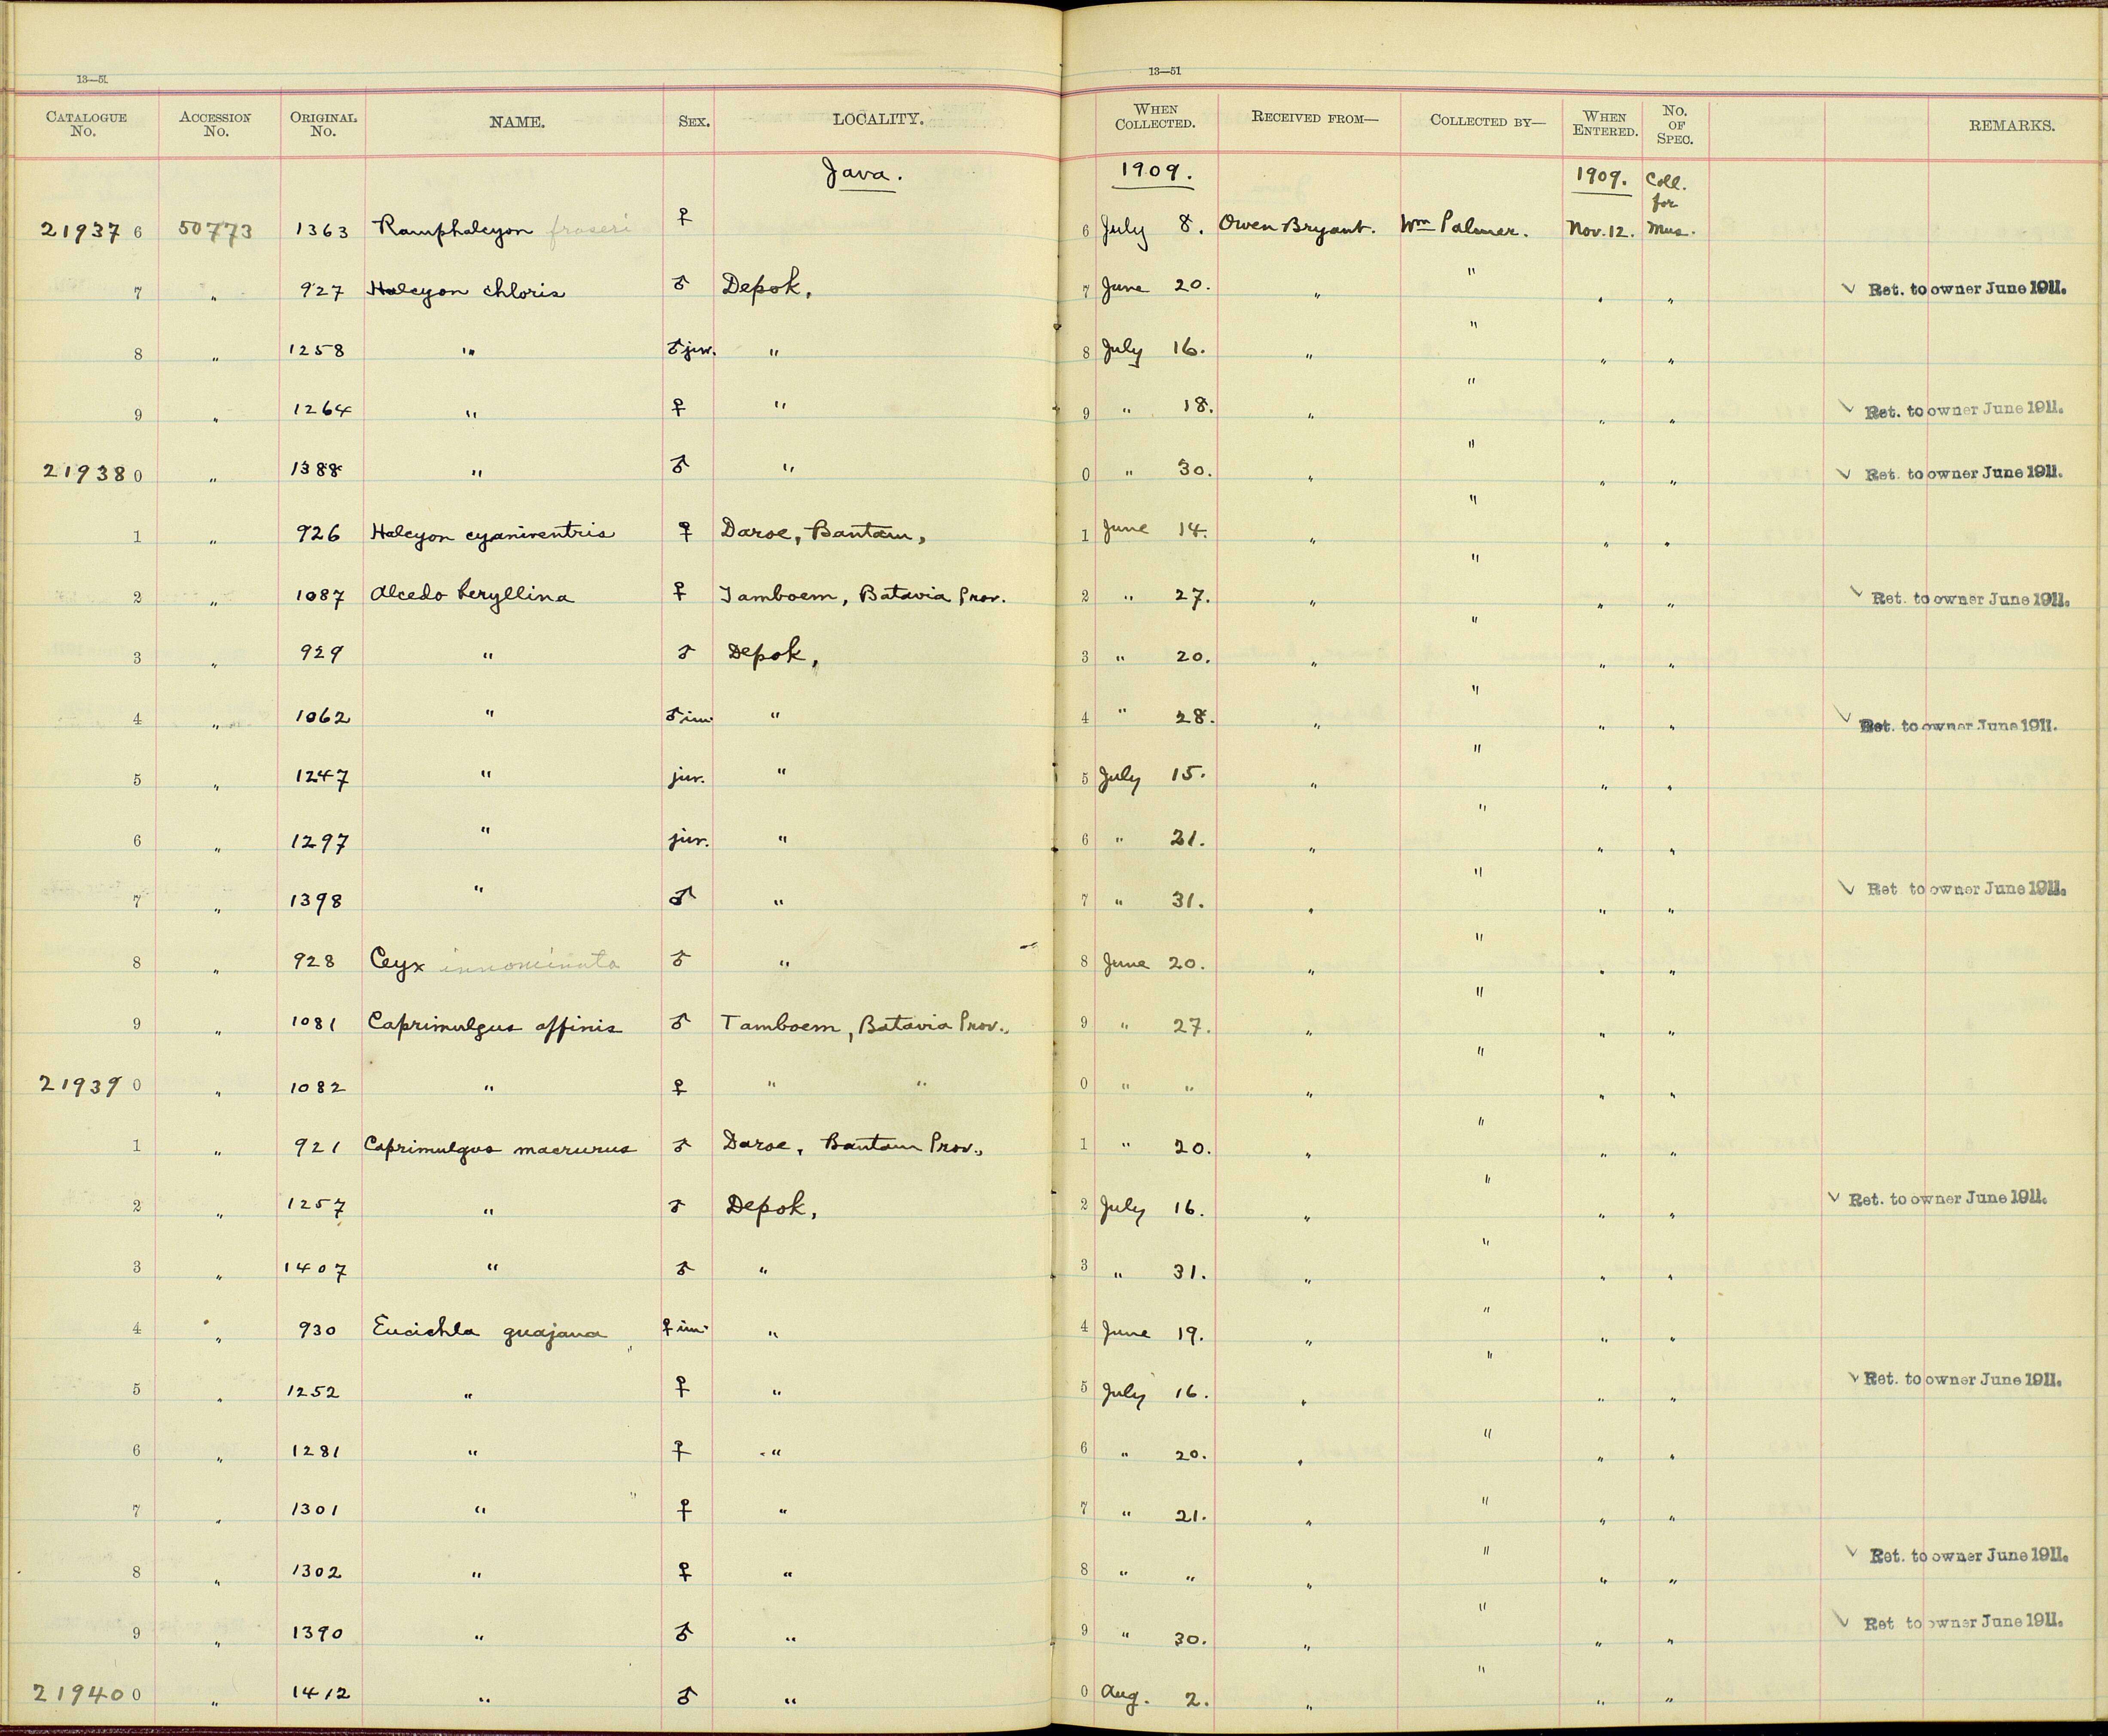 13—51 13—51
CATALOGUE No. ACCESSION No. ORIGINAL No. NAME. SEX. LOCALITY. WHEN COLLECTED. RECEIVED FROM— COLLECTED BY— WHEN ENTERED. No. OF SPEC. REMARKS.
Java. 1909. 1909. Coll. for
21937 6 50773 1363 Ramphalcyon fraseri ♀ 6 July 8. Owen Bryant. Wm Palmer. Nov. 12. Mus.
7 " 927 Halcyon chloris ♂ Depok, 7 June 20. " " " " ✓ Ret. to owner June 1911.
8 " 1258 " ♂ juv. " 8 July 16. " " " "
9 " 1264 " ♀ " 9 " 18. " " " " ✓ Ret. to owner June 1911.
21938 0 " 1388 " ♂ " 0 " 30. " " " " ✓ Ret. to owner June 1911.
1 " 926 Halcyon cyaniventris ♀ Daroe, Bantam, 1 June 14. " " " "
2 " 1087 Alcedo beryllina ♀ Tamboem, Batavia Prov. 2 " 27. " " " " ✓ Ret. to owner June 1911.
3 " 929 " ♂ Depok, 3 " 20. " " " "
4 " 1062 " ♂ im. " 4 " 28. " " " " ✓ Ret. to owner June 1911.
5 " 1247 " juv. " 5 July 15. " " " "
6 " 1297 " juv. " 6 " 21. " " " "
7 " 1398 " ♂ " 7 " 31. " " " " ✓ Ret to owner June 1911.
8 " 928 Ceyx innominata ♂ " 8 June 20. " " " "
9 " 1081 Caprimulgus affinis ♂ Tamboem, Batavia Prov., 9 " 27. " " " "
21939 0 " 1082 " ♀ " " 0 " " " " " "
1 " 921 Caprimulgus macrurus ♂ Daroe, Bantam Prov., 1 " 20. " " " "
2 " 1257 " ♂ Depok, 2 July 16. " " " " ✓ Ret. to owner June 1911.
3 " 1407 " ♂ " 3 " 31. " " " "
4 " 930 Eucichla guajana ♀ im. " 4 June 19. " " " "
5 " 1252 " ♀ " 5 July 16. " " " " ✓ Ret. to owner June 1911.
6 " 1281 " ♀ " 6 " 20. " " " "
7 " 1301 " ♀ " 7 " 21. " " " "
8 " 1302 " ♀ " 8 " " " " " " ✓ Ret. to owner June 1911.
9 " 1390 " ♂ " 9 " 30. " " " " ✓ Ret to owner June 1911.
21940 0 " 1412 " ♂ " 0 Aug. 2. " " " "